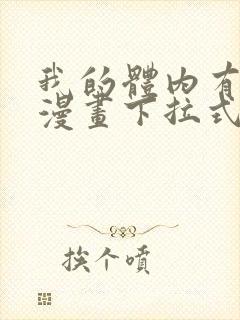 我的體内有
漫畫下拉式
挨个噴